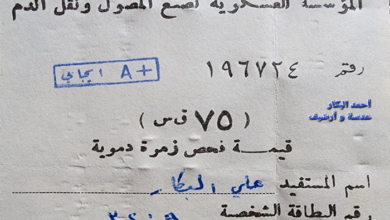 المؤسسة العسكرية لصنع المصول ونقل الدم
رقم ١٩٦٧٢٤
A+ ايجابي
أحمد البكار
عدسة و أرشيف
( ٧٥ ق س )
قيمة فحص زمرة دموية
اسم المستفيد علي البكار
رقم البطاقة الشخصية